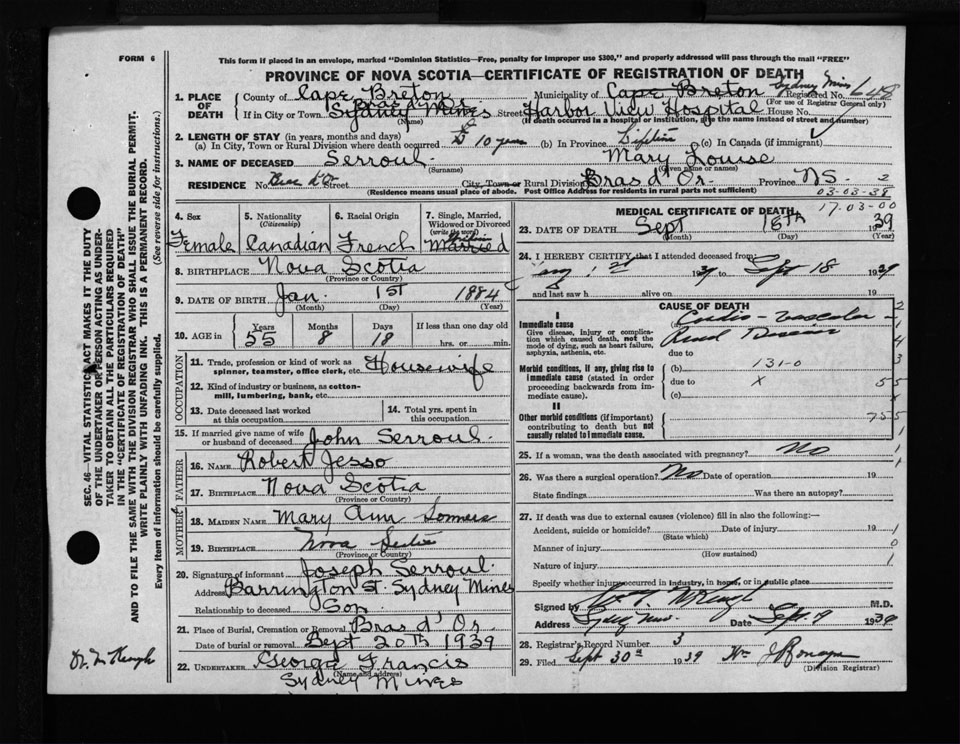 FORM 6
This form if placed in an envelope, marked "Dominion Statistics—Free, penalty for improper use $300," and properly addressed will pass through the mail "FREE"
PROVINCE OF NOVA SCOTIA—CERTIFICATE OF REGISTRATION OF DEATH
Sydney Mines
1. PLACE OF DEATH County of Cape Breton Municipality of Cape Breton Registered No. 648
(For use of Registrar General only)
If in City or Town Sydney Mines Street Harbor View Hospital House No.
(Name) (If death occurred in a hospital or institution, give the name instead of street and number)
2. LENGTH OF STAY (in years, months and days)
(a) In City, Town or Rural Division where death occurred 10 years (b) In Province Lifetime (c) In Canada (if immigrant)
3. NAME OF DECEASED Serroul. Mary Louise
(Surname) (Given name or names)
RESIDENCE No. Street City, Town or Rural Division Bras d'Or. Province NS. 2
(Residence means usual place of abode. Post Office Address for residents in rural parts not sufficient) 03-03-38
17.03-00
4. Sex Female
5. Nationality (Citizenship) Canadian
6. Racial Origin French
7. Single, Married, Widowed or Divorced (write the word) Married
8. BIRTHPLACE Nova Scotia
(Province or Country)
9. DATE OF BIRTH Jan. 1st 1884
(Month) (Day) (Year)
10. AGE in Years 55 Months 8 Days 18 If less than one day old hrs. or min.
OCCUPATION
11. Trade, profession or kind of work as spinner, teamster, office clerk, etc. Housewife
12. Kind of industry or business, as cotton-mill, lumbering, bank, etc.
13. Date deceased last worked at this occupation
14. Total yrs. spent in this occupation
15. If married give name of wife or husband of deceased John Serroul.
FATHER
16. NAME Robert Jesso
17. BIRTHPLACE Nova Scotia
(Province or Country)
MOTHER
18. MAIDEN NAME Mary Ann Somers
19. BIRTHPLACE Nova Scotia
(Province or Country)
20. Signature of informant Joseph Serroul.
Address Barrington St. Sydney Mines
Relationship to deceased Son
21. Place of Burial, Cremation or Removal Bras d'Or
Date of burial or removal Sept 20th 1939
22. UNDERTAKER George Francis
(Name and address)
Sydney Mines
MEDICAL CERTIFICATE OF DEATH
23. DATE OF DEATH Sept 18th 1939
(Month) (Day) (Year)
24. I HEREBY CERTIFY that I attended deceased from:
to Sept 18 1939
and last saw h alive on 19
CAUSE OF DEATH
I
Immediate cause
Give disease, injury or complication which caused death, not the mode of dying, such as heart failure, asphyxia, asthenia, etc.
(a) Cardio-vascular
Renal Disease
due to
Morbid conditions, if any, giving rise to immediate cause (stated in order proceeding backwards from immediate cause).
(b) 131-0
due to x
(c)
II
Other morbid conditions (if important) contributing to death but not causally related to immediate cause.
25. If a woman, was the death associated with pregnancy? No
26. Was there a surgical operation? No Date of operation 19
State findings Was there an autopsy?
27. If death was due to external causes (violence) fill in also the following:—
Accident, suicide or homicide? Date of injury 19
(State which)
Manner of injury
(How sustained)
Nature of injury
Specify whether injury occurred in industry, in home, or in public place
Signed by M.D.
Address Date Sept. 1939
28. Registrar's Record Number 3
29. Filed Sept 30th 1939
(Division Registrar)
SEC. 46—VITAL STATISTICS ACT MAKES IT THE DUTY OF THE UNDERTAKER OR PERSON ACTING AS UNDERTAKER TO OBTAIN ALL THE PARTICULARS REQUIRED IN THE "CERTIFICATE OF REGISTRATION OF DEATH" AND TO FILE THE SAME WITH THE DIVISION REGISTRAR WHO SHALL ISSUE THE BURIAL PERMIT.
WRITE PLAINLY WITH UNFADING INK. THIS IS A PERMANENT RECORD.
Every item of information should be carefully supplied. (See reverse side for instructions.)